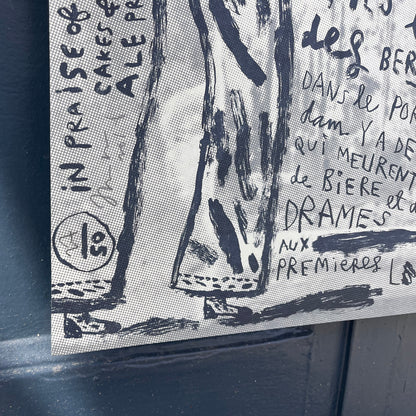 iN PRAiSE of
CAKES &
ALE PR
50
des BER
DANS le POR
dam Y A DE
QUi MEURENT
de BiERE et d
DRAMES
AUX
PREMiERES